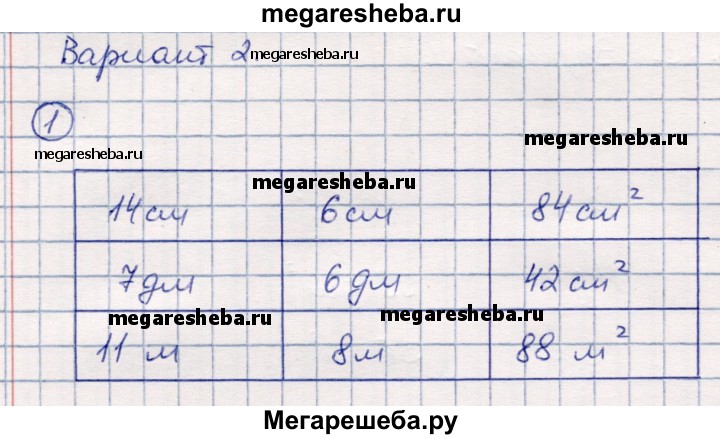 megaresheba.ru
Вариант 2 megaresheba.ru
1
megaresheba.ru
megaresheba.ru
megaresheba.ru
14 см 6 см 84 см²
7 дм 6 дм 42 см²
megaresheba.ru megaresheba.ru
11 м 8 м 88 м²
Мегарешеба.ру